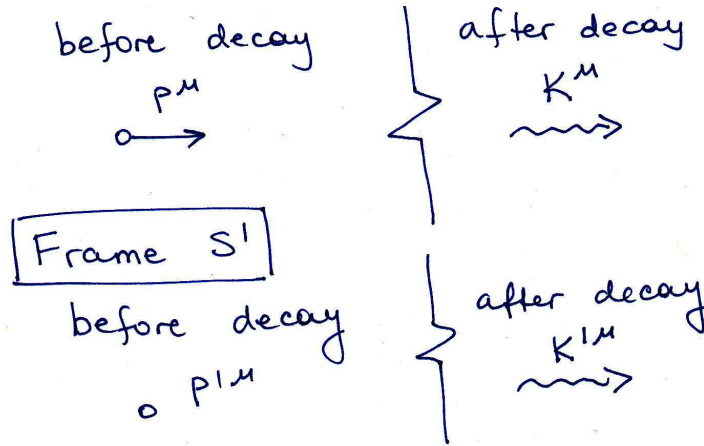 before decay
after decay
p^μ
K^μ
Frame S'
before decay
after decay
p'^μ
K'^μ